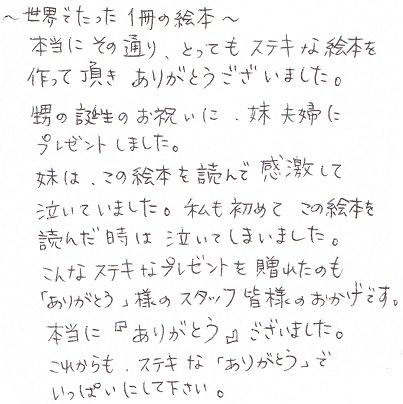 ～世界でたった1冊の絵本～
本当にその通り、とってもステキな絵本を
作って頂きありがとうございました。
甥の誕生のお祝いに、妹夫婦に
プレゼントしました。
妹は、この絵本を読んで感激して
泣いていました。私も初めてこの絵本を
読んだ時は泣いてしまいました。
こんなステキなプレゼントを贈れたのも
「ありがとう」様のスタッフ皆様のおかげです。
本当に『ありがとう』ございました。
これからも、ステキな「ありがとう」で
いっぱいにして下さい。